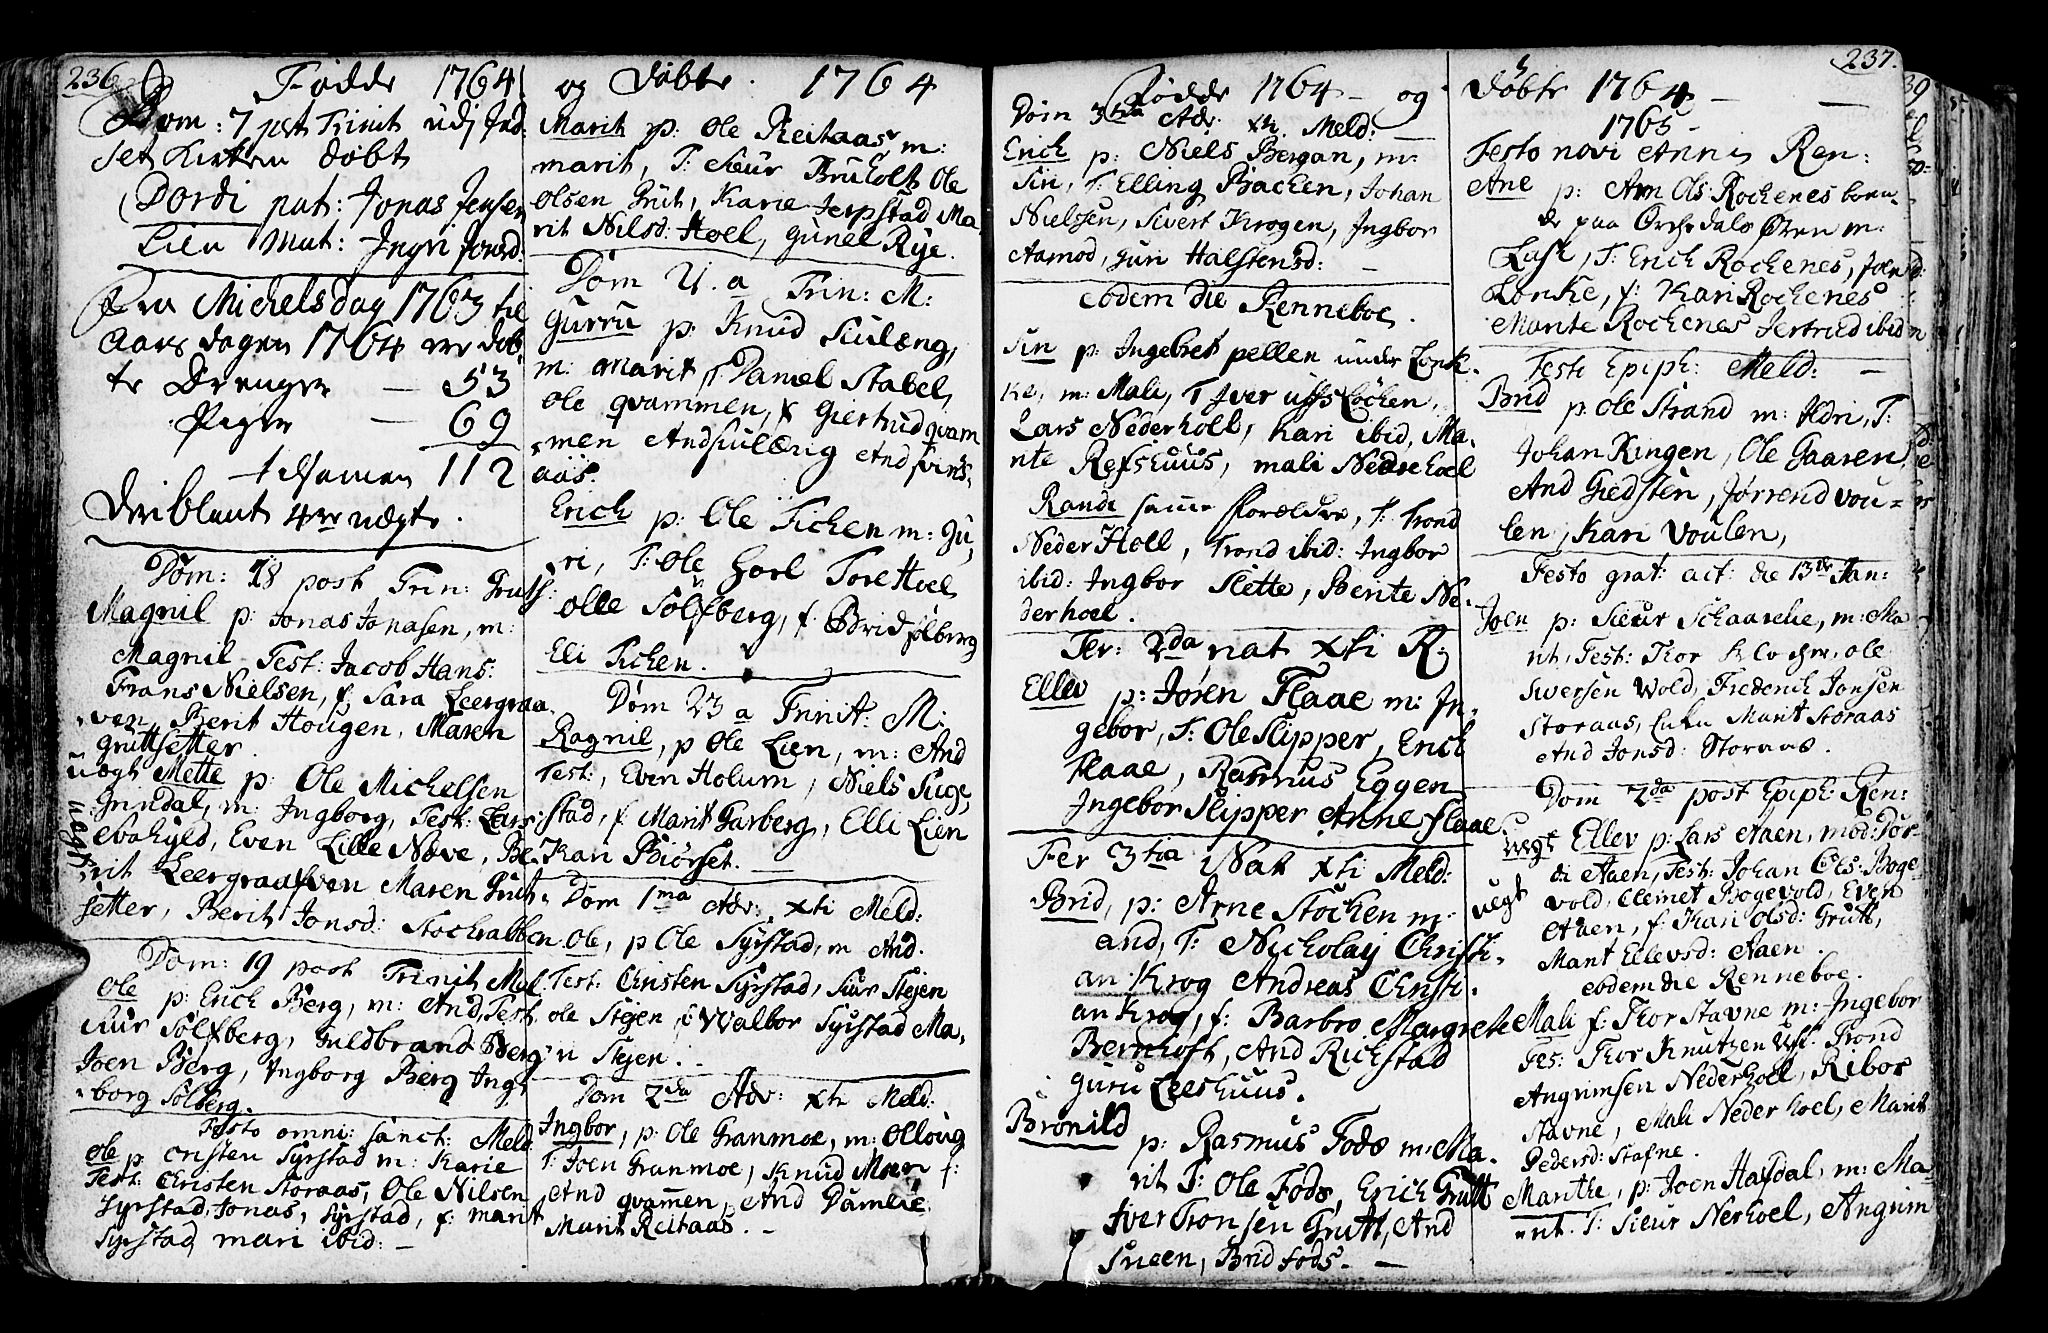 236
Fødde 1764
Dom: 7 post Trinit udj Ind
set Kirken døbt
Dordi pat: Jonas Jensen
Lien mut: Ingri Jonsd:
Fra Michelsdag 1763 til
Aars dagen 1764 ere døb
te Drenger — 53
Piger — 69
tilsamen 112
Deriblant 4re uægte.
Dom: 18 post Trin: Grutt:
Magnil p: Jonas Jonasen, m:
Magnil Test: Jacob Hans:
Frans Nielsen, f: Sara Leergraa
ven, Berit Hougen, Maren
Gruttsetter.
uægt Mette p: Ole Michelsen
Grindal, m: Ingborg, Test: Lars
Evahyld, Even Lille Næve, Be
uægt
rit Leergraafven Maren Grut
setter, Berit Jonsd: Stochalben
Dom: 19 post Trinit Mel
Ole p: Erich Berg, m: And, Test
Siur Sølfberg, Guldbrand Berg
Joen Berg, Ingborg Berg Ing
borg Sølberg.
Festo omni: sanct: Meld
Ole p: Cristen Syrstad m: Karie
Test: Christen Storaas, Ole Nilsen
Syrstad, Jonas, Syrstad, f: marit
Syrstad mari ibid: —
og Døbte. 1764
Marit p: Ole Reitaas m:
marit, T: Sieur Bruholt Ole
Olsen Grut, Karie Jerpstad Ma
rit Nilsd: Hoel, gunel Rye.
Dom 21. a Trin: M:
Gurru p: Knud Siulæng,
m: marit T: Daniel Stabel,
Ole qvammen, f Giertrud qvam
men And Siulæng And svins
aas.
Erich p: Ole Tichen m: Gu
ri, T: Ole Hoel Tore Hoel
olle Sølfberg, f: Brid sølberg
Eli Tichen.
Dom 23 a Trinit: M:
Ragnil, p Ole Lien, m: And
Test:, Even Holum, Niels Suge
stad, f Marit Garberg, Elli Lien
Kari Biørset. —
Dom 1ma Adv: xti Meld:
Ole, p Ole Syrstad, m And.
Test: Christen Syrstad, Siur Stejen
ole Stejen f: Walbor Syrstad Ma
ri Stejen. —
Dom 2da Adv: xti Meld:
Ingbor, p: Ole Granmoe, m: Olloug
T: Joen Granmoe, Knud Moen f:
And qvamen, And Damlie
Marit Reitaas. —
Fødde 1764 — og
Dom 3tia Adv: xti. Meld: —
Erich p: Niels Bergan, m:
Sin, T: Elling Bachen, Johan
Nielsen, Sivert Krogen, Ingbor
Aamod, Guri Halstensd: —
eodem die Renneboe.
Sin p: Ingebret pellen under Lønk
ke, m: Mali, T Iver Løchen,
Lars Nederholl, Kari ibid, Ma
rite Refshuus, mali Nederhoel
Randi samme Forældre, T: Trond
Neder Holl, Trond ibid: Ingbor
ibid: Ingbor Slette, Berite Ne
derhoel.
Fer: 2da nat xti R:
Ellev p: Jøren Flaae m: In
gebor, T: Ole Slipper, Erich
Flaae, Rasmus Eggen
Ingebor Slipper Anne Flaae
Fer 3tia Nat xti Meld:
Brid, p: Arne Støchen m:
and, T: Nicholay Christi
an Krog Andreas Christi
an Krog, f: Barbro Margrete
Bernhoft, And Richstad
Guru Leeshuus.
Bronild p: Rasmus Fods m: Ma
rit T: Ole Fods, Erich Grutt
Iver Tronsen Grutt, And
Sneen, Brid Fods. —
237.
Døbte 1764 — —
1765 —
Festo novi Anni Ren:
Ane p: Arn Ols: Rochenes boen
de paa Orchedals Øren m:
Lasl, T: Erich Rochenes, Joen
Lønke, f: Kari Rochenes
Marite Rochenes Jertrud ibid
Festi Epiph: Meld: —
Brid p: Ole Strand m: Ildri, T:
Johan Ringen, Ole Gaaren
And Giedsten, Jørrend vou
len, Kari Voulen,
Festo grat: act: die 13de Jan:
Joen p: Sieur Schaarelie, m: Ma
rit, Test: Thor Klocher, ole
Siversen Wold, Frederich Jonsen
Storaas, Marit Storaas
And Jonsd: Storaas.
Dom 2da post Epiph: Ren:
uegt Ellev p: Lars Aaen, mod: Dor
di Aaen, Test: Johan Ols: Boge
uegt
vold, Clemet Bogevold, Even
Aaen, f: Kari Olsd: Grutt,
Marit Ellevsd: Aaen.
eodem die Renneboe.
Mali f: Thor Stavne m: Ingebor
Tes: Thor Knutzen Trond
Angrimsen Nederhoel, Ribor
Stavne, Mali Neder hoel, Marit
Pedersd: Stafne.
Marithe, p: Joen Hafdal, m: Ma
rit. T: Sieur Nerhoel, Angrim